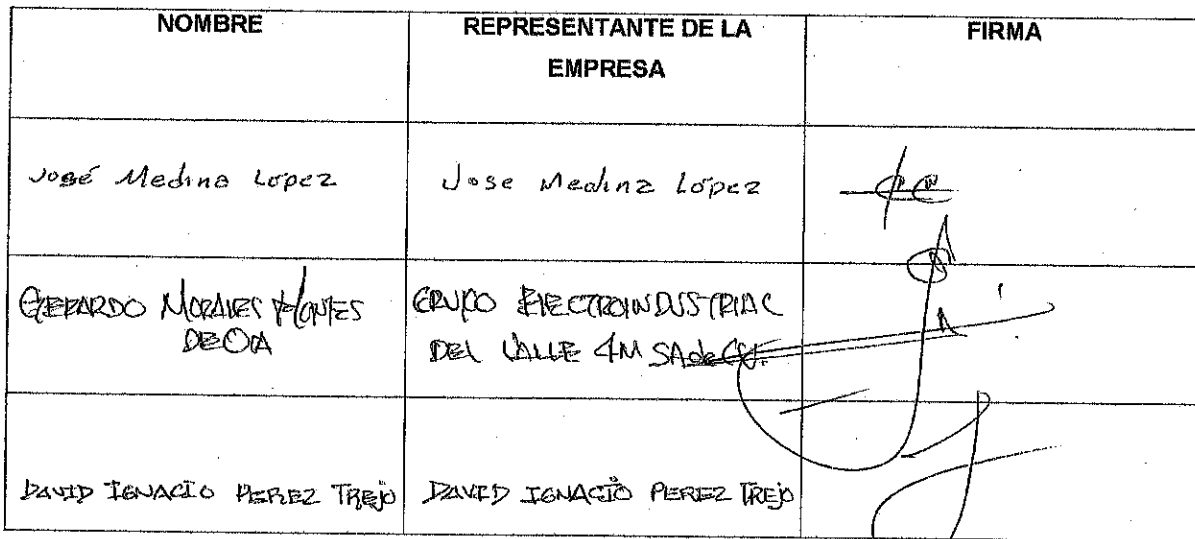 NOMBRE
REPRESENTANTE DE LA
EMPRESA
FIRMA
José Medina López
Jose Medina López
GERARDO MORALES MONTES
DE OCA
GRUPO ELECTROINDUSTRIAL
DEL VALLE 4M SA de CV.
DAVID IGNACIO PEREZ TREJO
DAVID IGNACIO PEREZ TREJO